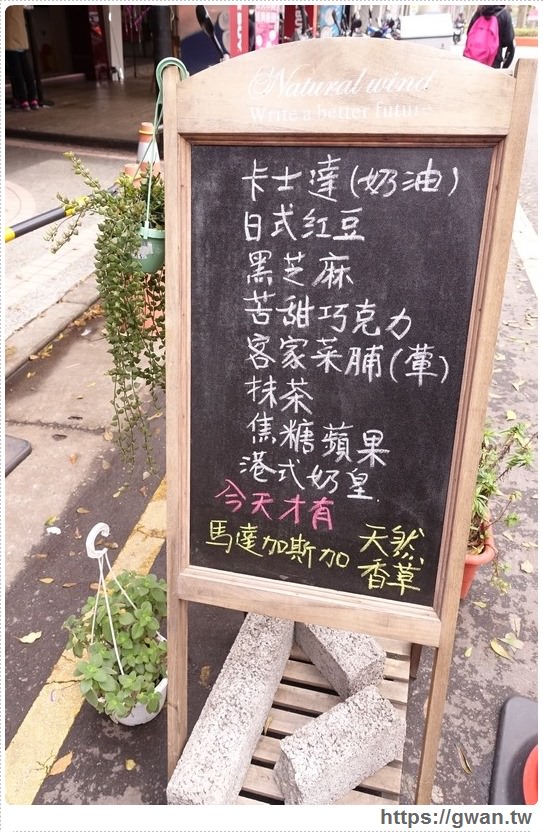 Natural wind
Write a better future
卡士達(奶油)
日式紅豆
黑芝麻
苦甜巧克力
客家菜脯(葷)
抹茶
焦糖蘋果
港式奶皇.
今天才有
馬達加斯加 天然
香草
https://gwan.tw